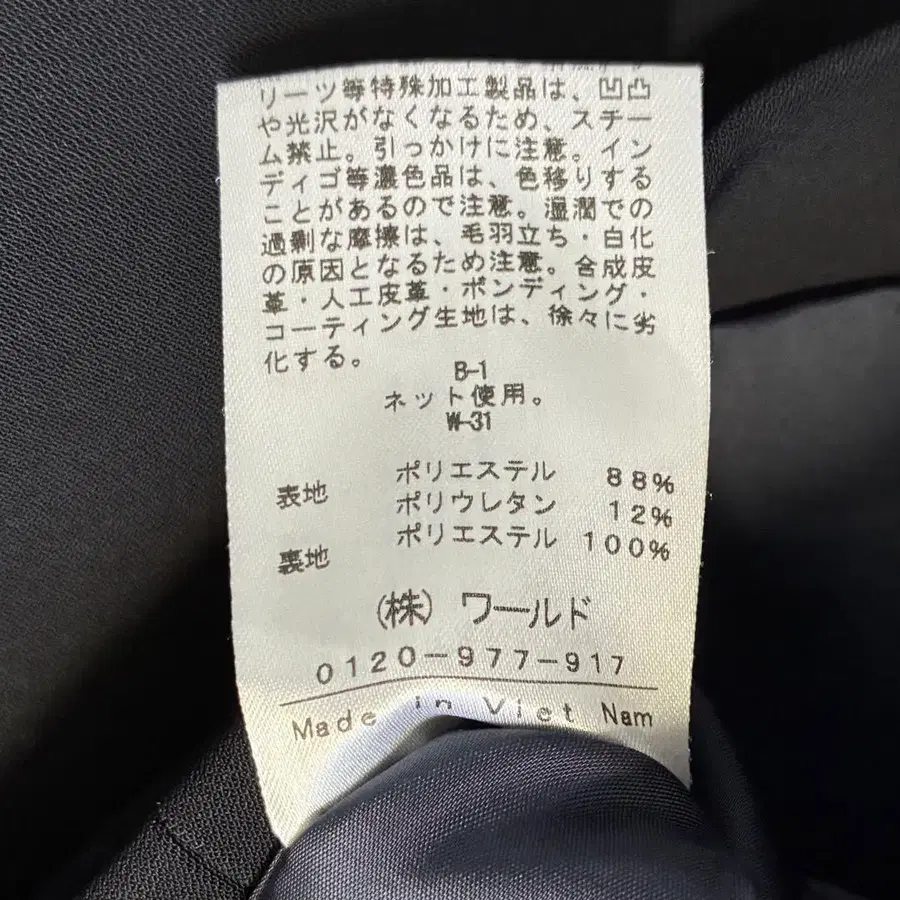 リーツ等特殊加工製品は、凹凸
や光沢がなくなるため、スチー
ム禁止。引っかけに注意。イン
ディゴ等濃色品は、色移りする
ことがあるので注意。湿潤での
過剰な摩擦は、毛羽立ち・白化
の原因となるため注意。合成皮
革・人工皮革・ボンディング・
コーティング生地は、徐々に劣
化する。
B-1
ネット使用。
W-31
表地 ポリエステル 88%
ポリウレタン 12%
裏地 ポリエステル 100%
(株) ワールド
0120-977-917
Made in Viet Nam